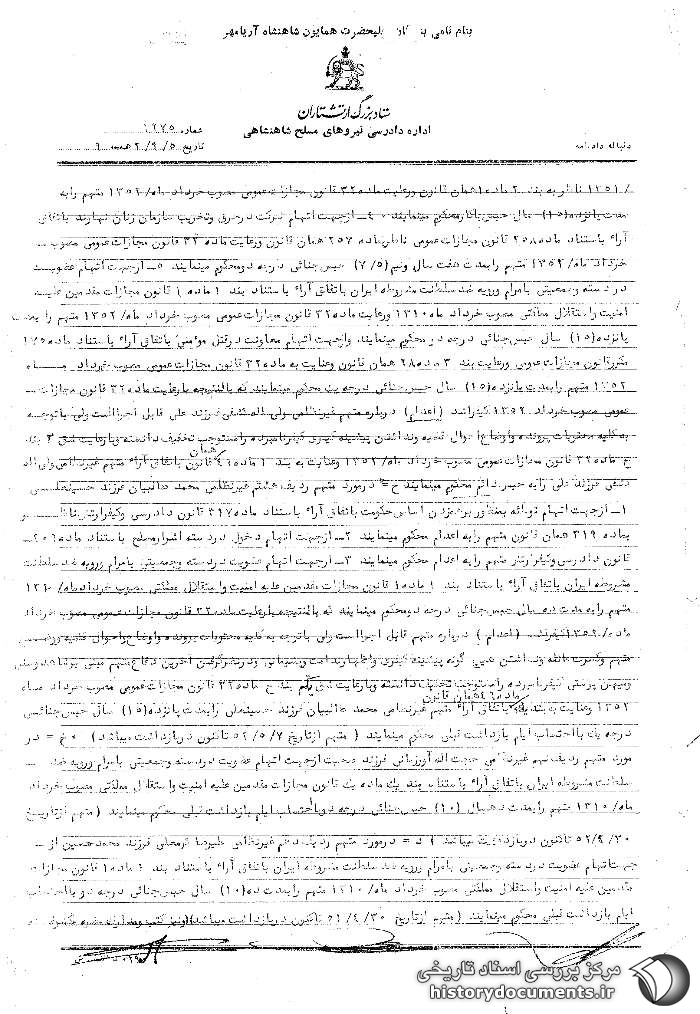 بنام نامی اعلیحضرت همایون شاهنشاه آریامهر
ستاد بزرگ ارتشتاران
اداره دادرسی نیروهای مسلح شاهنشاهی
شماره ۱۲۷۵
دنباله دادنامه
تاریخ ۲/۹/۵ صفحه ۹
/۱۳۵۱ ناظر به بند ۲ ماده ۱ همان قانون ورعایت ماده ۳۲ قانون مجازات عمومی مصوب خرداد ماه/ ۱۳۵۲ متهم را به
مدت پانزده (۱۵) سال حبس با کار محکوم مینمایند ۴ـ ازجهت اتهام شرکت در حریق وتخریب سازمان زنان نهاوند باتفاق
آراء باستناد ماده ۲۵۸ قانون مجازات عمومی ناظر بماده ۲۵۷ همان قانون ورعایت ماده ۳۲ قانون مجازات عمومی مصوب ـ
خرداد ماه/ ۱۳۵۲ متهم را بمدت هفت سال ونیم (۷/۵) حبس جنائی درجه دو محکوم مینمایند ۵ـ ازجهت اتهام عضویت
در دسته وجمعیتی بامرام ورویه ضد سلطنت مشروطه ایران باتفاق آراء باستناد بند ۱ ماده ۱ قانون مجازات مقدمین علیه
امنیت واستقلال مملکتی مصوب خرداد ماه ۱۳۱۰ ورعایت ماده ۳۲ قانون مجازات عمومی مصوب خرداد ماه/ ۱۳۵۲ متهم را بمدت
پانزده (۱۵) سال حبس جنائی درجه یک محکوم مینمایند وازجهت اتهام معاونت در قتل باتفاق آراء باستناد ماده ۱۷۵
مکرر قانون مجازات عمومی ورعایت بند ۳ ماده ۲۸ همان قانون وعنایت به ماده ۳۲ قانون مجازات عمومی مصوب خرداد مــاه
۱۳۵۲ متهم را بمدت پانزده (۱۵) سال حبس جنائی درجه یک محکوم مینمایند که بالنتیجه بارعایت ماده ۳۲ قانون مجازات ـ
عمومی مصوب خرداد ۱۳۵۲ کیفر اشد (اعدام) درباره متهم غیرنظامی ولی اله فرزند علی قابل اجراست ولی باتوجه
به کلیه محتویات پرونده واوضاع احوال قضیه ونداشتن پیشینه کیفری کیفر نامبرده را مستوجب تخفیف دانسته وبارعایت شق ۳ بند
ج ماده ۳۲ قانون مجازات عمومی مصوب خرداد ماه/ ۱۳۵۲ وعنایت به بند ۱ ماده ۴۶ همان قانون باتفاق آراء متهم غیرنظامی ولی اله
فرزند علی را به حبس دائم محکوم مینمایند خ = درمورد متهم ردیف هشتم غیرنظامی محمد طالبیان فرزند حسینعلی
۱ـ ازجهت اتهام توطئه بمنظور برهم زدن اساس حکومت باتفاق آراء باستناد ماده ۳۱۷ قانون دادرسی وکیفر ارتش ناظر
بماده ۳۱۹ همان قانون متهم را به اعدام محکوم مینمایند ۲ـ ازجهت اتهام دخول در دسته اشرار مسلح باستناد ماده ۴۰۹
قانون دادرسی وکیفر ارتش متهم را به اعدام محکوم مینمایند ۳ـ ازجهت اتهام عضویت در دسته وجمعیتی بامرام ورویه ضد سلطنت
مشروطه ایران باتفاق آراء باستناد بند ۱ ماده ۱ قانون مجازات مقدمین علیه امنیت واستقلال مملکتی مصوب خرداد ماه/ ۱۳۱۰
متهم را به مدت ده سال حبس جنائی درجه دو محکوم مینمایند که بالنتیجه بارعایت ماده ۳۲ قانون مجازات عمومی مصوب خرداد
ماه/ ۱۳۵۲ کیفر اشد (اعدام) درباره متهم قابل اجراست ولی باتوجه به کلیه محتویات پرونده واوضاع واحوال قضیه
متهم ونداشتن هیچ گونه پیشینه کیفری واظهار ندامت وپشیمانی ودرنظر گرفتن آخرین دفاع متهم مبنی بر شاهدوستی
ومیهن پرستی کیفر نامبرده را مستوجب تخفیف دانسته وبارعایت شق یکم بند ج ماده ۳۲ قانون مجازات عمومی مصوب خرداد ماه
۱۳۵۲ وعنایت به بند یک ماده ۴۶ همان قانون باتفاق آراء متهم غیرنظامی محمد طالبیان فرزند حسینعلی را بمدت پانزده (۱۵) سال حبس جنائی
درجه یک بااحتساب ایام بازداشت قبلی محکوم مینمایند (متهم ازتاریخ ۵۲/۵/۷ تاکنون دربازداشت میباشد) خ = در
مورد متهم ردیف نهم غیرنظامی حجت اله آورزمانی فرزند ازجهت اتهام عضویت در دسته وجمعیتی بامرام ورویه ضد
سلطنت مشروطه ایران باتفاق آراء باستناد بند یک ماده یک قانون مجازات مقدمین علیه امنیت واستقلال مملکتی مصوب خرداد
ماه/ ۱۳۱۰ متهم را بمدت ده سال (۱۰) حبس جنائی درجه دو بااحتساب ایام بازداشت قبلی محکوم مینمایند (متهم ازتاریخ
۵۲/۴/۳۰ تاکنون دربازداشت میباشد) د = درمورد متهم ردیف دهم غیرنظامی علیرضا فرزند محمدحسین از ـ
جهت اتهام عضویت در دسته وجمعیتی بامرام ورویه ضد سلطنت مشروطه ایران باتفاق آراء باستناد بند ۱ ماده ۱ قانون مجازات
مقدمین علیه امنیت واستقلال مملکتی مصوب خرداد ماه/ ۱۳۱۰ متهم را بمدت ده (۱۰) سال حبس جنائی درجه دو بااحتساب
ایام بازداشت قبلی محکوم مینمایند (متهم ازتاریخ ۵۲/۴/۳۰ تاکنون دربازداشت میباشد)
مرکز بررسی اسناد تاریخی
historydocuments.ir